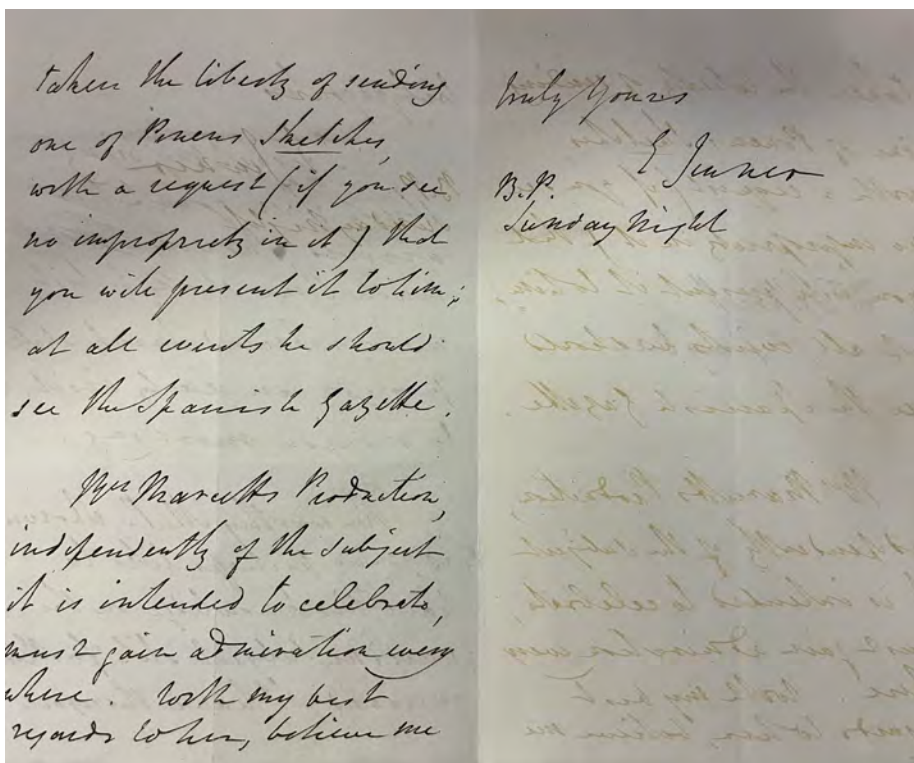 taken the liberty of sending
one of Power's Sketches,
with a request (if you see
no impropriety in it) that
you will present it to him;
at all events he should
see the Spanish Gazette.
Mrs Marcetts Production,
independently of the subject
it is intended to celebrate,
must gain admiration every
where. With my best
regards to her, believe me
truly yours
E Jenner
B.P.
Sunday Night